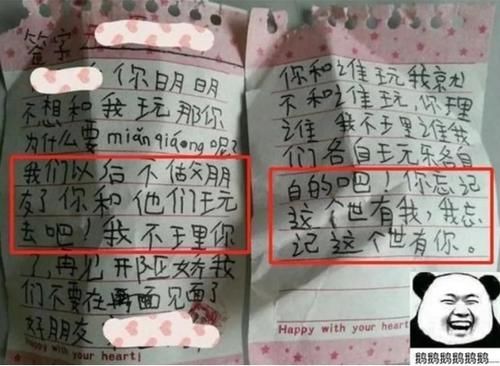 签字
你明明
不想和我玩那你
为什么要miǎnqiǎng呢?
我们以后不做朋
友了你和他们玩
去吧!我不理你
了,再见
们不要在再面见面了
好朋友
Happy with your heart!
你和谁玩我京尤
不和谁玩,你理
谁我不理谁我
们各自玩乐各自
白的吧!你忘记
这个世有我,我忘
记这个世有你。
Happy with your heart
鹅鹅鹅鹅鹅鹅......